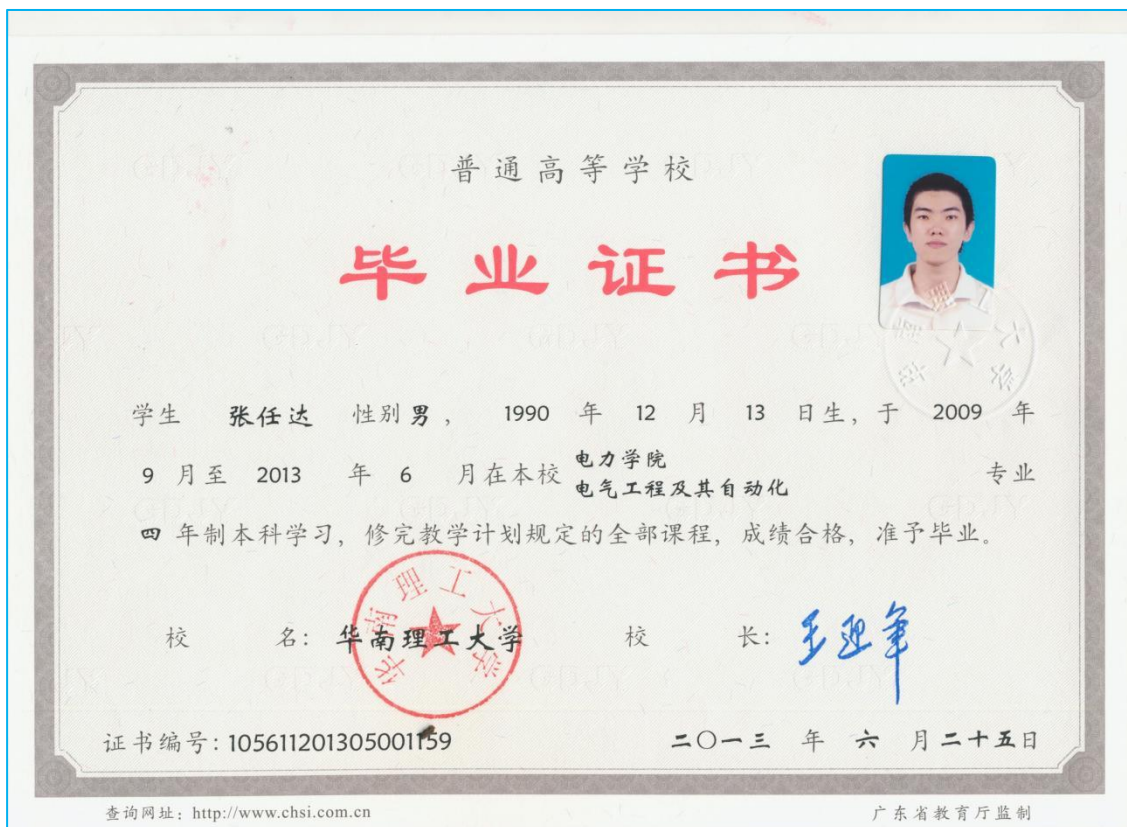 普通高等学校
毕业证书
学生 张任达 性别男， 1990 年 12 月 13 日生，于 2009 年
9 月至 2013 年 6 月在本校 电力学院 电气工程及其自动化 专业
四 年制本科学习，修完教学计划规定的全部课程，成绩合格，准予毕业。
校 名：华南理工大学 校 长：王迎军
华南理工大学
证书编号：105611201305001159 二〇一三 年 六 月二十五日
查询网址：http://www.chsi.com.cn 广东省教育厅监制